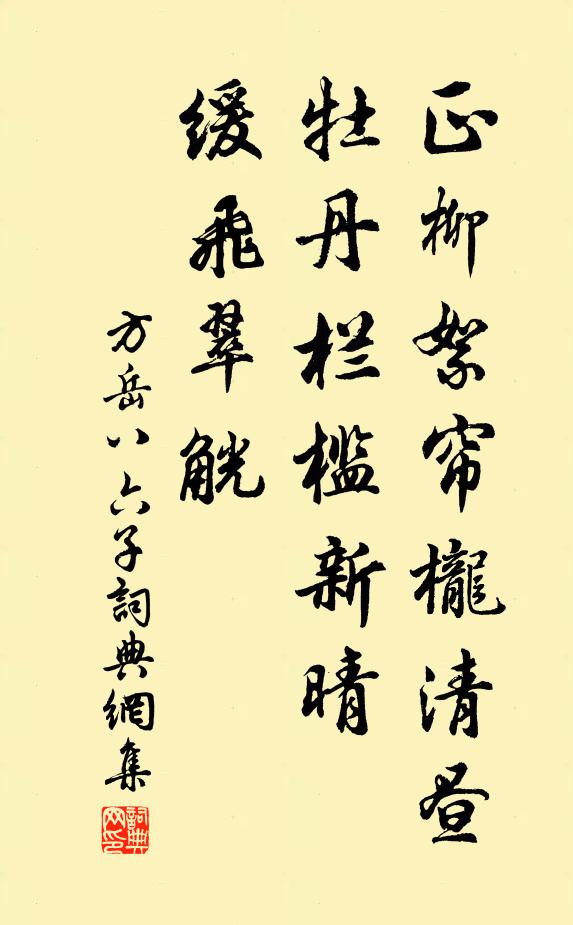 正柳絮帘櫳清昼
牡丹栏槛新晴
缓飛翠觥
方岳八六子詞典網集
詞典网印